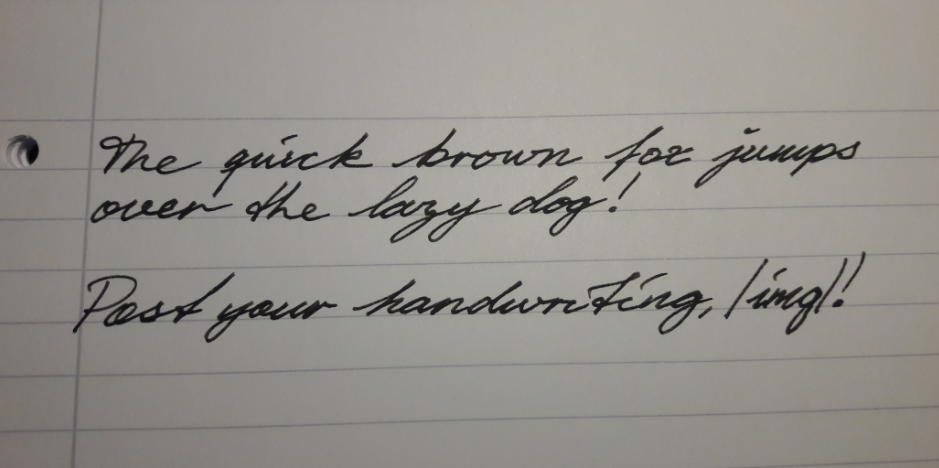 The quick brown fox jumps
over the lazy dog!
Post your handwriting, /img/!